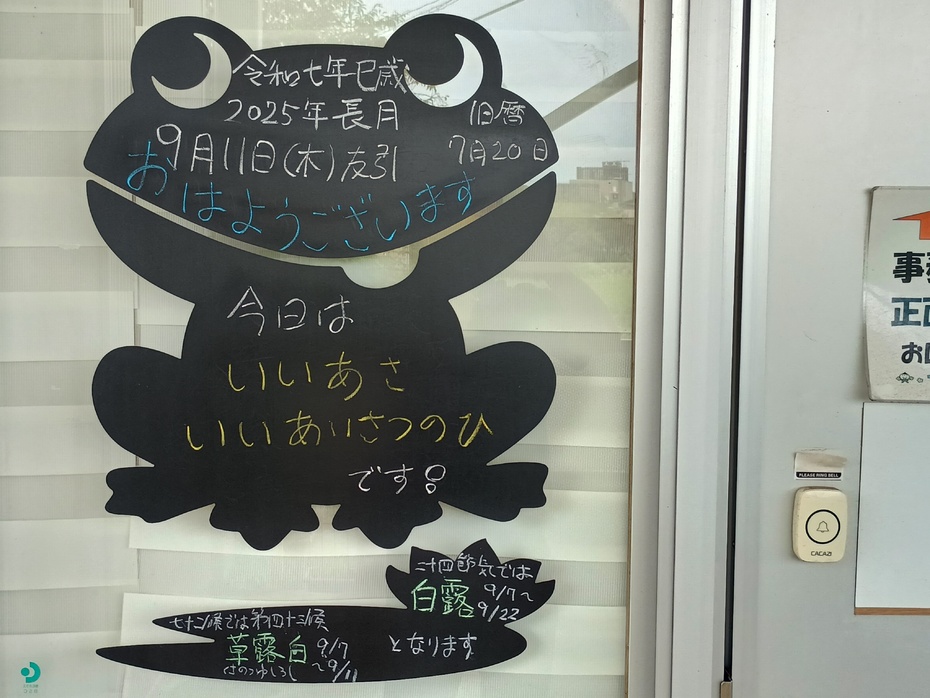 令和七年巳歳
2025年長月
9月11日(木)友引
旧暦
7月20日
おはようございます
今日は
いいあさ
いいあいさつのひ
です!
二十四節気では
白露
9/7～
9/22
七十二候では第四十三候
草露白
くさのつゆしろし
9/7
～9/11
となります
事
正
お
PLEASE RING BELL
CACAZI